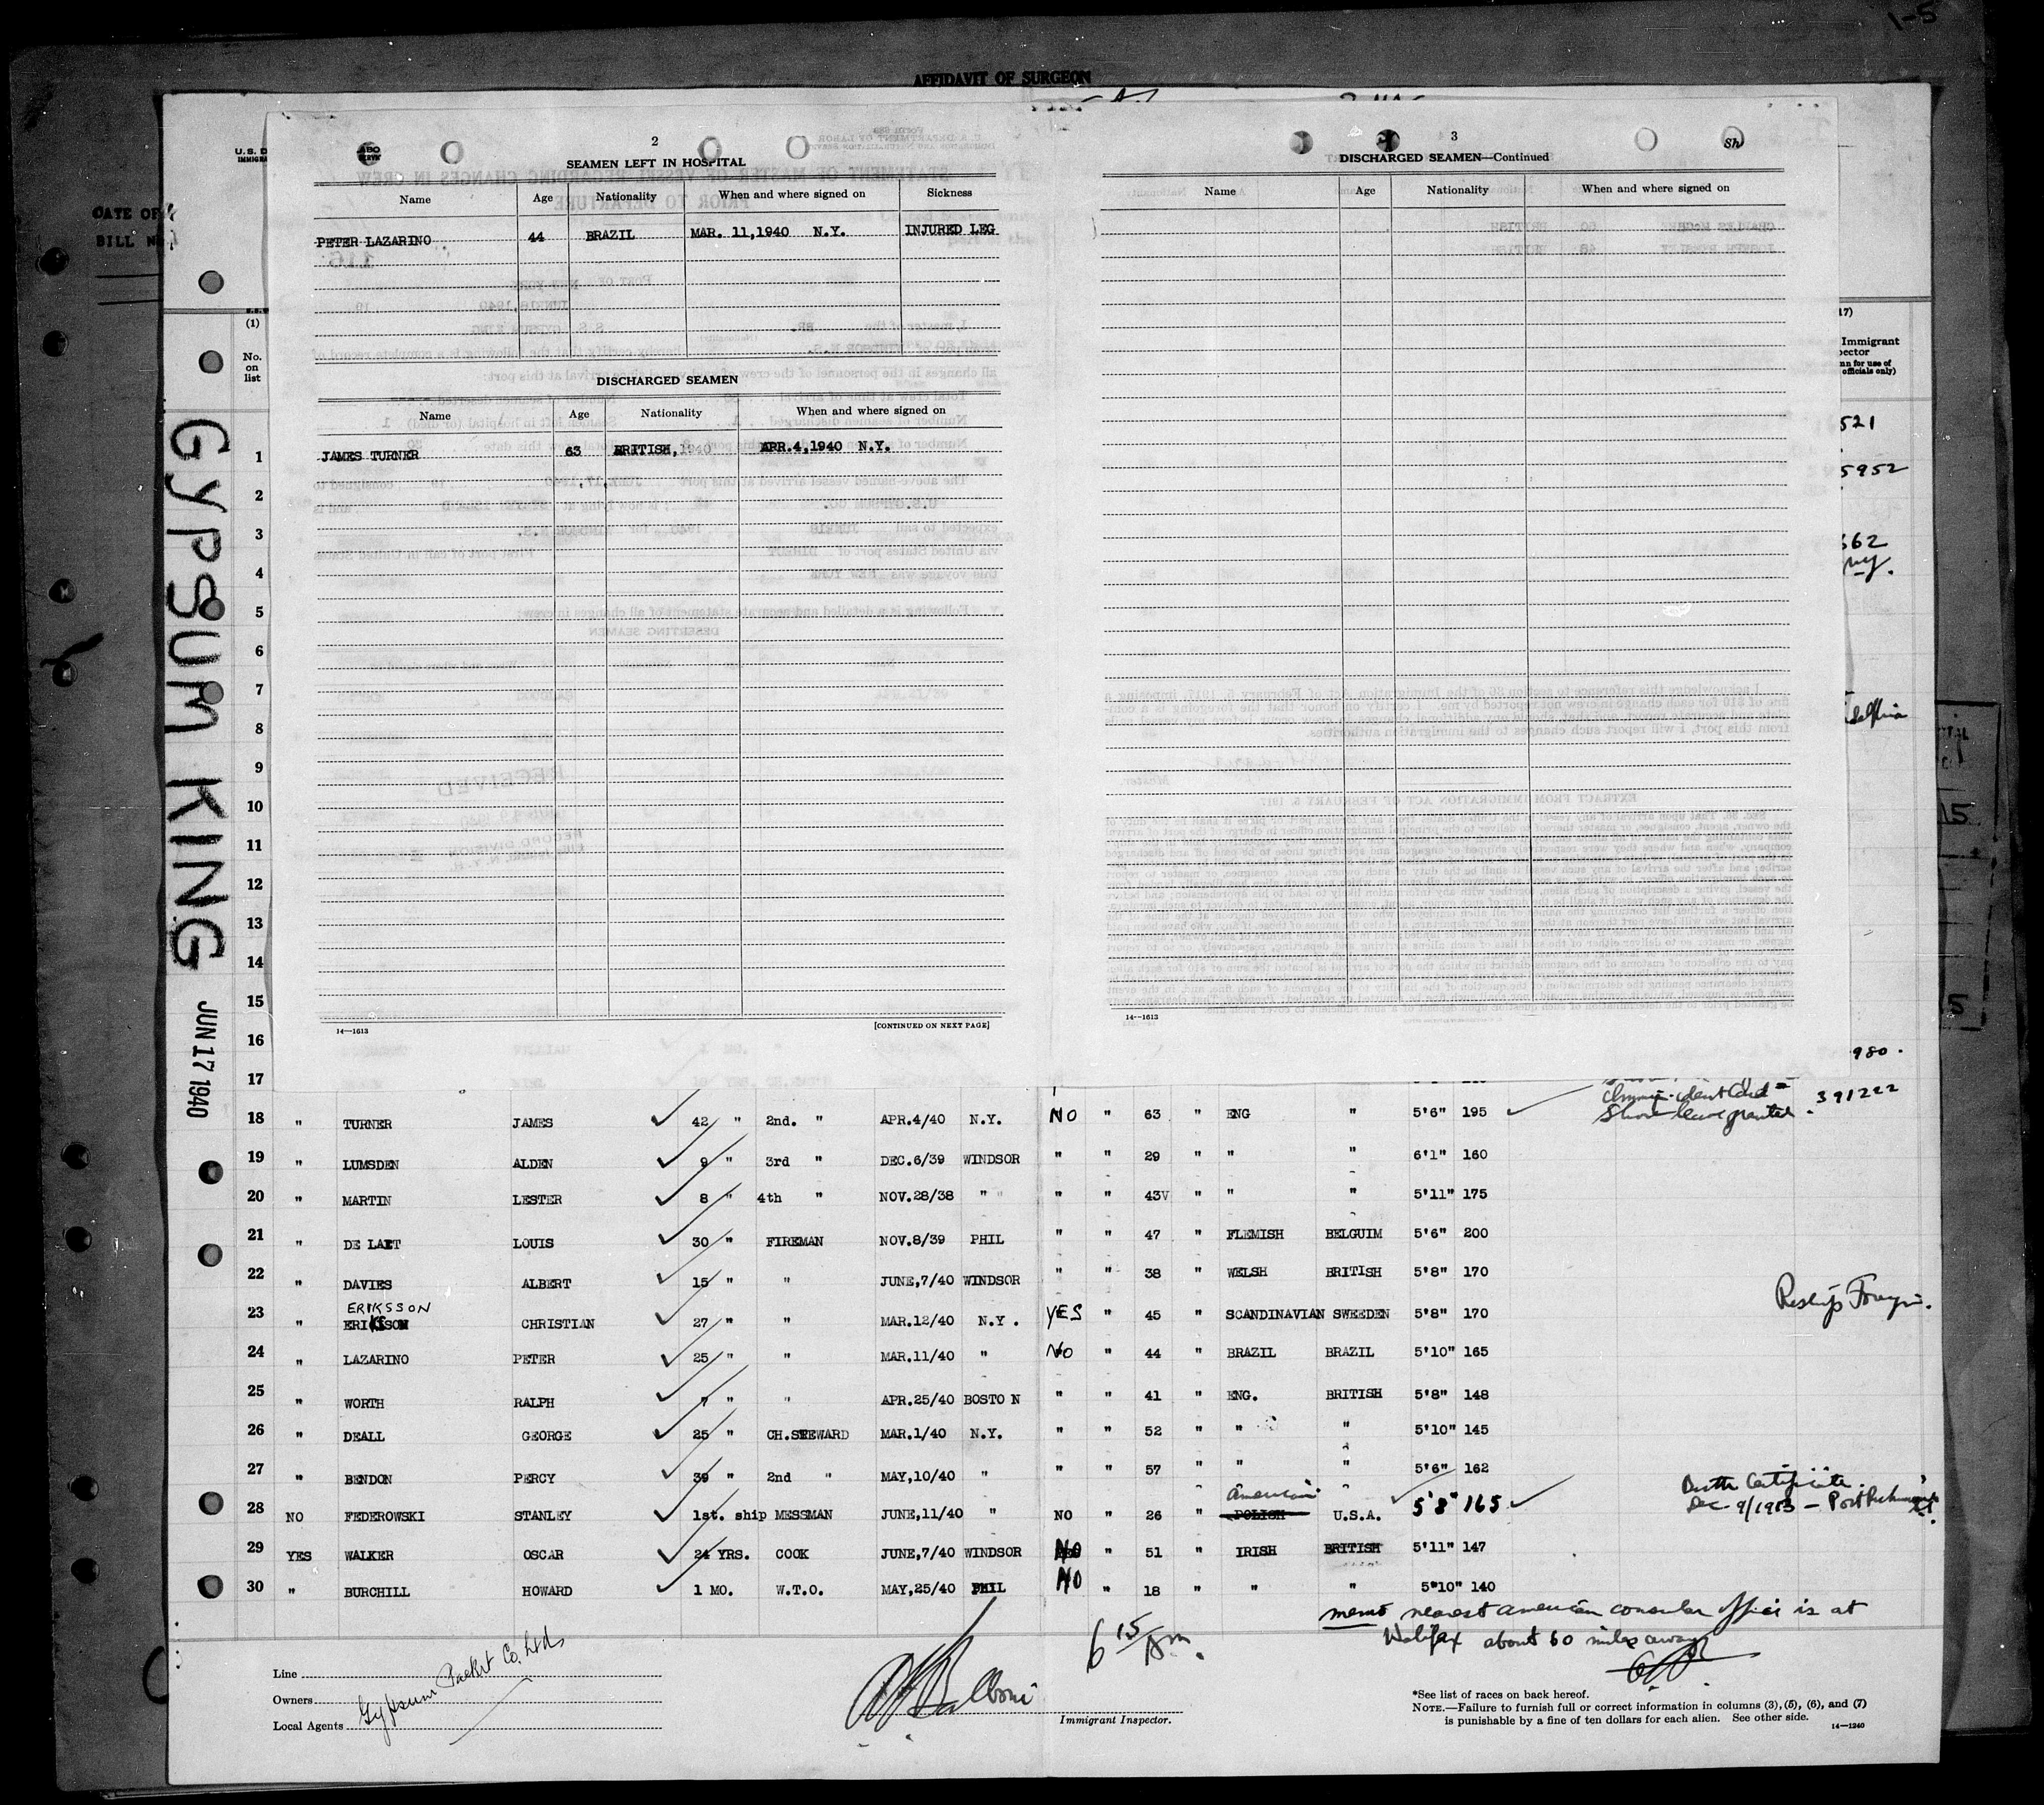 1-5
AFFIDAVIT OF SURGEON
DATE OF
BILL
U.S. D
IMMIGRA
(1)
No.
on
list
GYPSUM KING
JUN 17 1940
2
SEAMEN LEFT IN HOSPITAL
Name Age Nationality When and where signed on Sickness
PETER LAZARINO 44 BRAZIL MAR. 11,1940 N.Y. INJURED LEG
DISCHARGED SEAMEN
Name Age Nationality When and where signed on
JAMES TURNER 63 BRITISH, APR.4,1940 N.Y.
14—1613
[CONTINUED ON NEXT PAGE]
3
Sh
DISCHARGED SEAMEN—Continued
Name Age Nationality When and where signed on
14—1613
17)
Immigrant
pector
nn for use of
officials only)
521
5952
562
980.
1
2
3
4
5
6
7
8
9
10
11
12
13
14
15
16
17
18 " TURNER JAMES 42 " 2nd. " APR.4/40 N.Y. NO " 63 " ENG " 5'6" 195 Immig. ident Card # 391222
Shore leave granted.
19 " LUMSDEN ALDEN 9 " 3rd " DEC.6/39 WINDSOR " " 29 " " " 6'1" 160
20 " MARTIN LESTER 8 " 4th " NOV.28/38 " " " " 43V " " " 5'11" 175
21 " DE LAET LOUIS 30 " FIREMAN NOV.8/39 PHIL " " 47 " FLEMISH BELGUIM 5'6" 200
22 " DAVIES ALBERT 15 " " JUNE,7/40 WINDSOR " " 38 " WELSH BRITISH 5'8" 170
ERIKSSON
23 " ERIKSSON CHRISTIAN 27 " " MAR.12/40 N.Y. YES " 45 " SCANDINAVIAN SWEEDEN 5'8" 170 Reship Foreign.
24 " LAZARINO PETER 25 " " MAR.11/40 " NO " 44 " BRAZIL BRAZIL 5'10" 165
25 " WORTH RALPH 7 " " APR.25/40 BOSTON " " 41 " ENG. BRITISH 5'8" 148
26 " DEALL GEORGE 25 " CH.STEWARD MAR.1/40 N.Y. " " 52 " " " 5'10" 145
27 " BENDON PERCY 39 " 2nd " MAY,10/40 " " " 57 " " " 5'6" 162
American
28 NO FEDEROWSKI STANLEY 1st. ship MESSMAN JUNE,11/40 " NO " 26 " POLISH U.S.A. 5'8" 165 Birth Certificate.
Dec 9/1913 — Port Richmond
29 YES WALKER OSCAR 24 YRS. COOK JUNE,7/40 WINDSOR NO " 51 " IRISH BRITISH 5'11" 147
30 " BURCHILL HOWARD 1 MO. W.T.O. MAY,25/40 PHIL NO " 18 " " " 5"10" 140
memo nearest American consular office is at
Halifax about 60 miles away
6 15/pm.
Line
Owners
Local Agents
Gypsum Packet Co. Ltd
Immigrant Inspector.
*See list of races on back hereof.
NOTE.—Failure to furnish full or correct information in columns (3), (5), (6), and (7)
is punishable by a fine of ten dollars for each alien. See other side.
14—1240